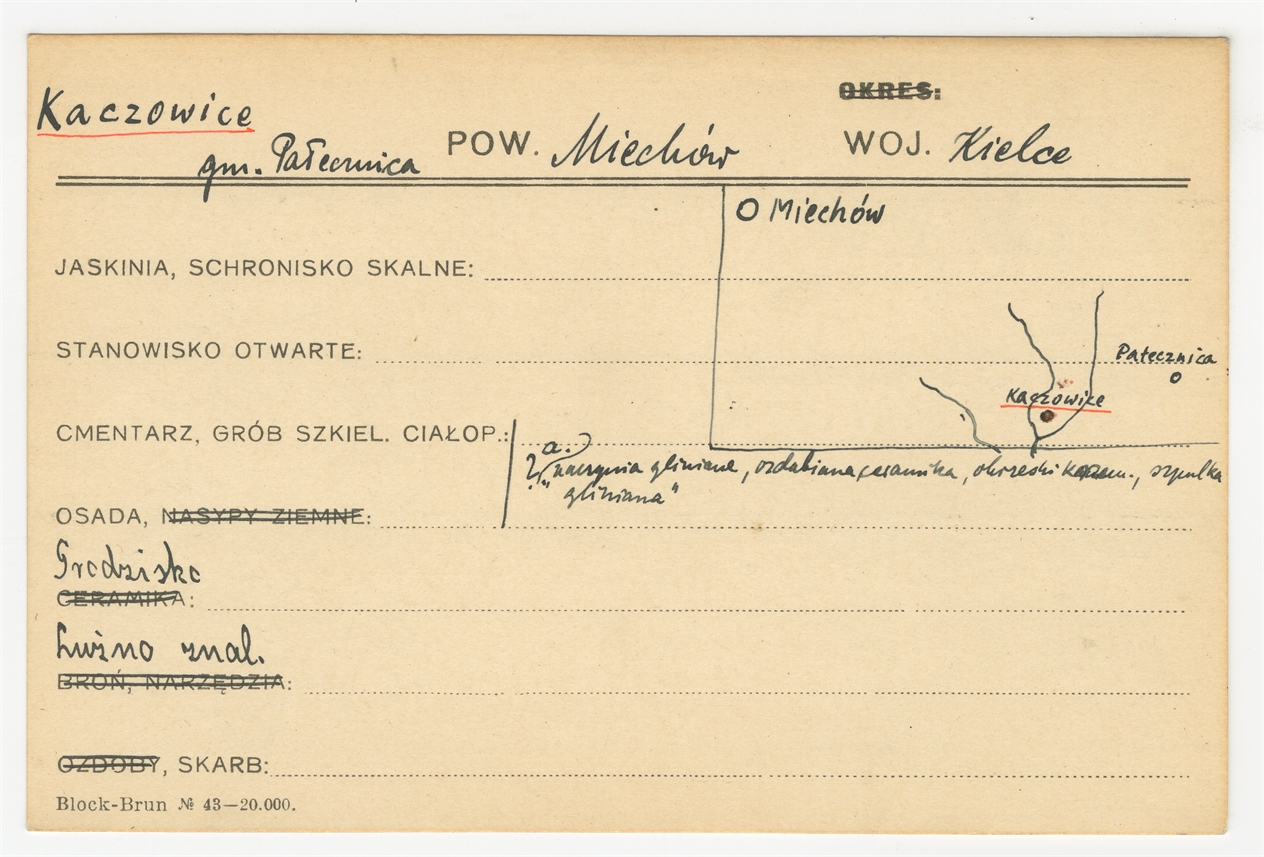 OKRES:
Kaczowice
gm. Pałecznica POW. Miechów WOJ. Kielce
O Miechów
JASKINIA, SCHRONISKO SKALNE:
STANOWISKO OTWARTE:
Pałecznica
Kaczowice
CMENTARZ, GRÓB SZKIEL. CIAŁOP.:
a.
? "naczynia gliniane, ozdabiana ceramika, okrzeski krzem., szpulka
gliniana"
OSADA, NASYPY ZIEMNE:
Grodzisko
CERAMIKA:
Luźno znal.
BROŃ, NARZĘDZIA:
OZDOBY, SKARB:
Block-Brun № 43—20.000.